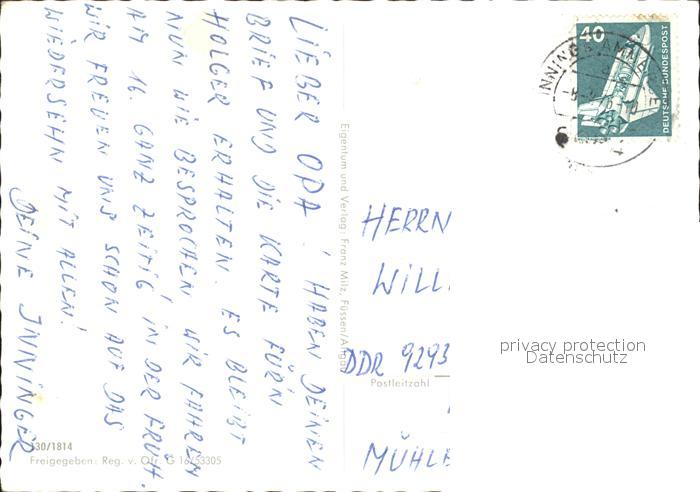 LIEBER OPA! HABEN DEINEN
BRIEF UND DIE KARTE FÜR'N
HOLGER ERHALTEN. ES BLEIBT
NUN WIE BESPROCHEN WIR FAHREN
AM 16. GANZ ZEITIG IN DER FRÜH.
WIR FREUEN UNS SCHON AUF DAS
WIEDERSEHN MIT ALLEN!
DEINE INNINGER
Eigentum und Verlag: Franz Milz, Füssen/Allgäu
40
DEUTSCHE BUNDESPOST
INNING A. AMM
HERRN
WILL
DDR 9293
Postleitzahl
MÜHL
privacy protection
Datenschutz
130/1814
Freigegeben: Reg. v. Obb. G 16/53305